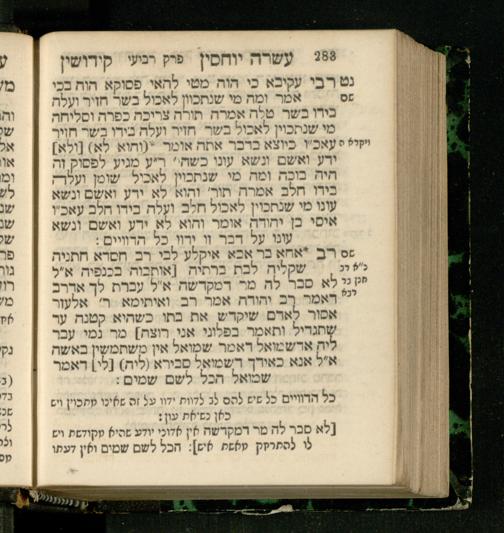 288 עשרה יוחסין פרק רביעי קידושין
נט רבי עקיבא כי הוה מטי להאי פסוקא הוה בכי
שם אמר ומה מי שנתכוין לאכול בשר חזיר ועלה
בידו בשר טלה אמרה תורה צריכה כפרה וסליחה
מי שנתכוין לאכול בשר חזיר ועלה בידו בשר חזיר
ויקרא ה עאכ״ו כיוצא בדבר אתה אומר *(והוא לא) [ולא]
ידע ואשם ונשא עונו כשהי׳ ר״ע מגיע לפסוק זה
היה בוכה ומה מי שנתכוין לאכול שומן ועלה
בידו חלב אמרה תור׳ והוא לא ידע ואשם ונשא
עונו מי שנתכוין לאכול חלב ועלה בידו חלב עאכ״ו
איסי בן יהודה אומר והוא לא ידע ואשם ונשא
עונו על דבר זו ידוו כל הדוויים :
שם רב *אחא בר אבא איקלע לבי רב חסדא חתניה
שקליה לבת ברתיה [אותבוה בכנפיה א״ל
לא סבר לה מר דמקדשה א״ל עברת לך אדרב
דאמר רב יהודה אמר רב ואיתימא ר׳ אלעזר
אסור לאדם שיקדש את בתו כשהיא קטנה עד
שתגדיל ותאמר בפלוני אני רוצה] מר נמי עבר
ליה אדשמואל דאמר שמואל אין משתמשין באשה
א״ל אנא כאידך דשמואל סבירא (ליה) [לי] דאמר
שמואל הכל לשם שמים :
כל הדוויים כל שיש להם לב לדוות ידוו על זה שאינו מתכוין ויש
כאן נשיאת עון :
[לא סבר לה מר דמקדשה אין אדוני יודע שהיא מקודשת ויש
לו להתרחק מאשת איש]: הכל לשם שמים ואין דעתו